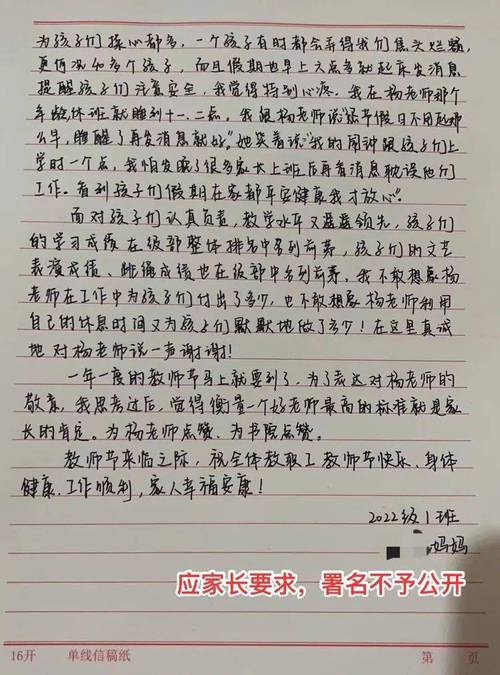 为孩子们操心都多，一个孩子有时都会弄得我们焦头烂额，
更何况40多个孩子，而且假期也早上六点多就起床发消息
提醒孩子们注意安全，我觉得特别心疼。我在杨老师那个
年龄休班就睡到十一、二点，我跟杨老师说"您节假日不用起那
么早，睡醒了再发消息就好"，她笑着说"我的闹钟跟孩子们上
学时一个点，我怕发晚了很多家长上班后再看消息耽误他们
工作。看到孩子们假期在家都平安健康我才放心"。
面对孩子们认真负责，教学水平又遥遥领先，孩子们
的学习成绩在级部整体排名中名列前茅，孩子们的文艺
表演成绩、跳绳成绩也在级部中名列前茅。我不敢想象杨
老师在工作中为孩子们付出了多少，也不敢想象杨老师利用
自己的休息时间又为孩子们默默地做了多少！在这里真诚
地对杨老师说一声谢谢！
一年一度的教师节马上就要到了，为了表达对杨老师的
敬意，我思考过后，觉得衡量一个好老师最高的标准就是家
长的肯定。为杨老师点赞、为书院点赞。
教师节来临之际，祝全体教职工教师节快乐、身体
健康、工作顺利，家人幸福安康！
2022级1班
妈妈
应家长要求，署名不予公开
16开 单线信稿纸 第 页